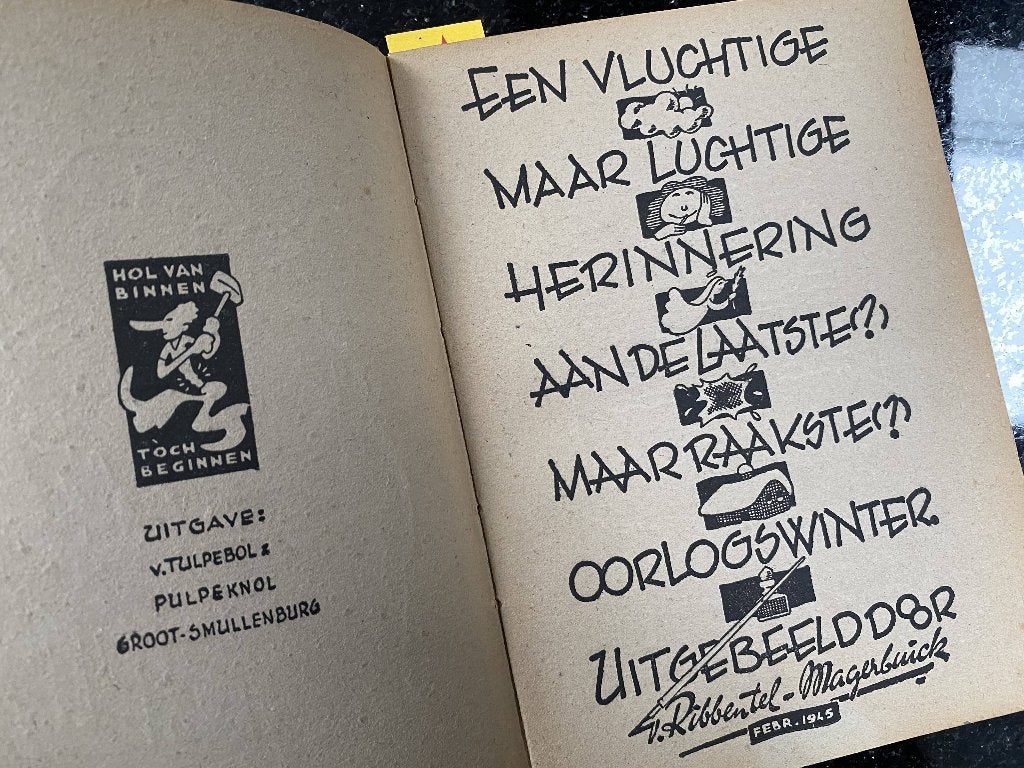 HOL VAN
BINNEN
TÒCH
BEGINNEN
UITGAVE:
v. TULPEBOL &
PULPEKNOL
GROOT-SMULLENBURG
EEN VLUCHTIGE
MAAR LUCHTIGE
HERINNERING
AAN DE LAATSTE(?)
MAAR RAAKSTE(?)
OORLOGSWINTER.
UITGEBEELD DOOR
v. Ribbentel-Magerbuick
FEBR. 1945